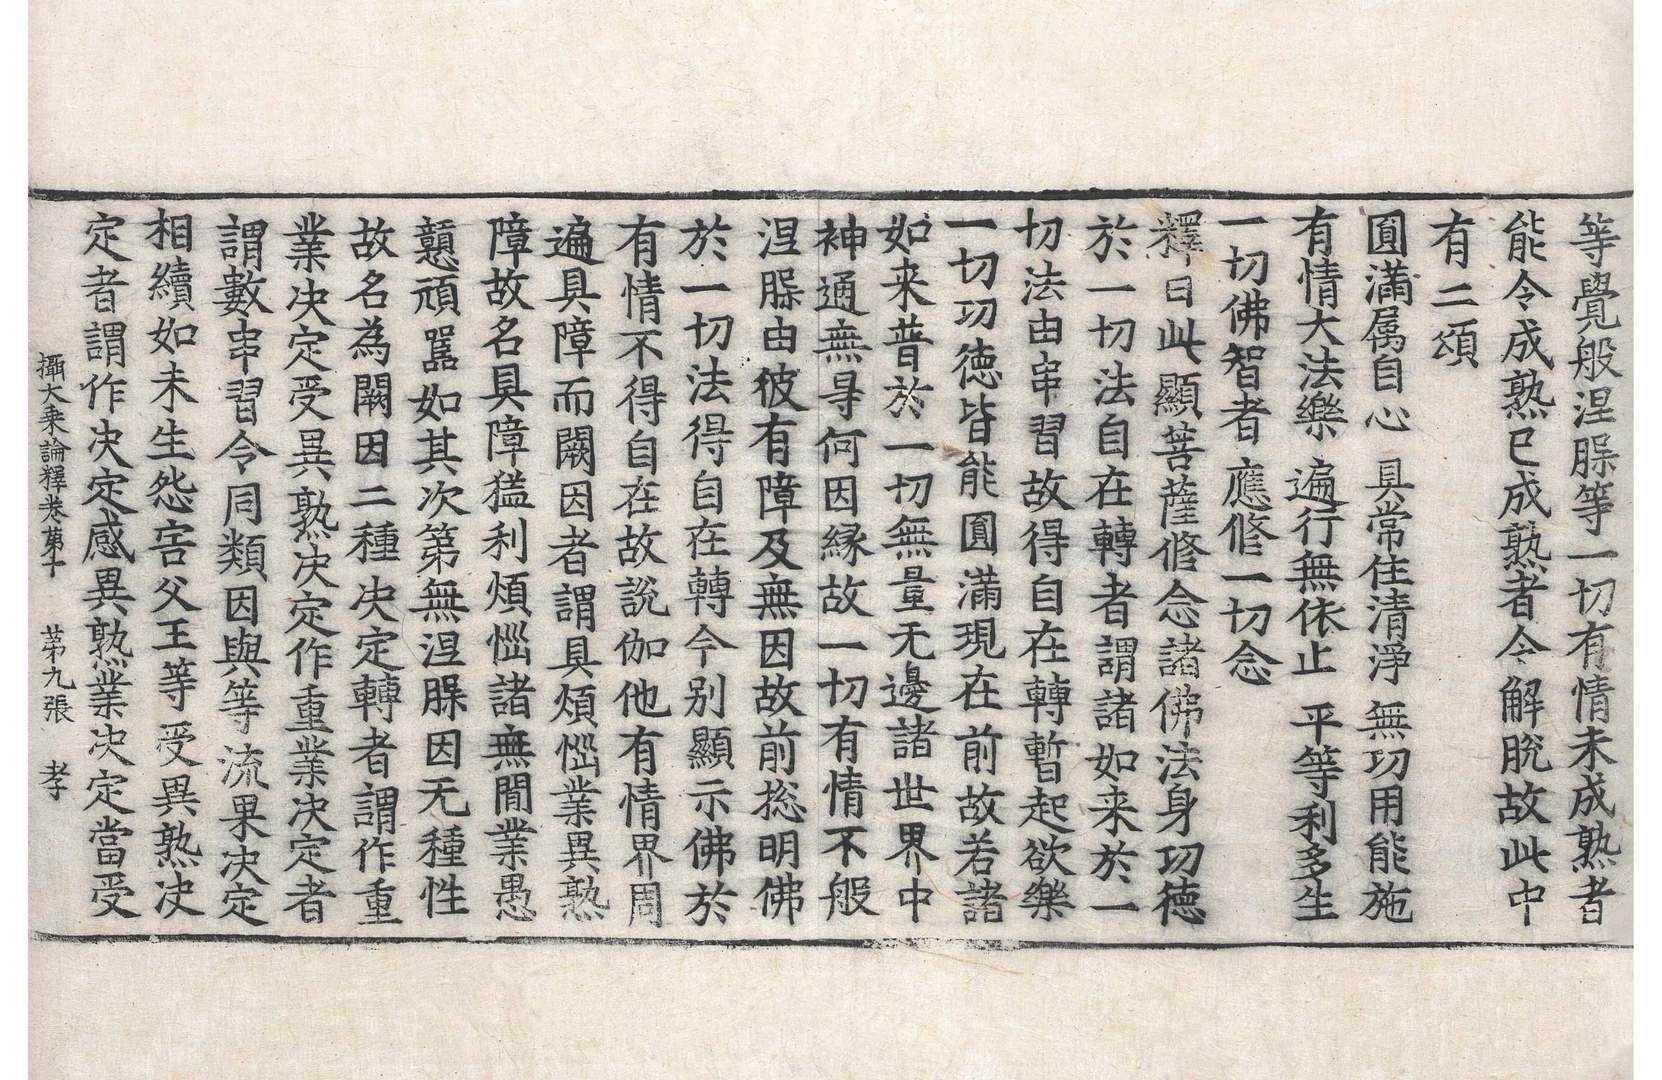 等覺般涅槃等一切有情未成熟者
能令成熟已成熟者令解脫故此中
有二頌
圓滿属自心　具常住清淨　無功用能施
有情大法樂　遍行無依止　平等利多生
一切佛智者　應修一切念
釋曰此顯菩薩修念諸佛法身功德
於一切法自在轉者謂諸如来於一
切法由串習故得自在轉暫起欲樂
一切功德皆能圓滿現在前故若諸
如来普於一切無量无邊諸世界中
神通無㝵何因緣故一切有情不般
涅槃由彼有障及無因故前捴明佛
於一切法得自在轉今别顯示佛於
有情不得自在故說伽他有情界周
遍具障而闕因者謂具煩惱業異熟
障故名具障猛利煩惱諸無間業愚
戇頑嚚如其次第無涅槃因无種性
故名為闕因二種决定轉者謂作重
業决定受異熟决定作重業决定者
謂數串習令同類因與等流果决定
相續如未生怨害父王等受異熟决
定者謂作决定感異熟業决定當受
攝大乘論釋卷第十　第九張　孝